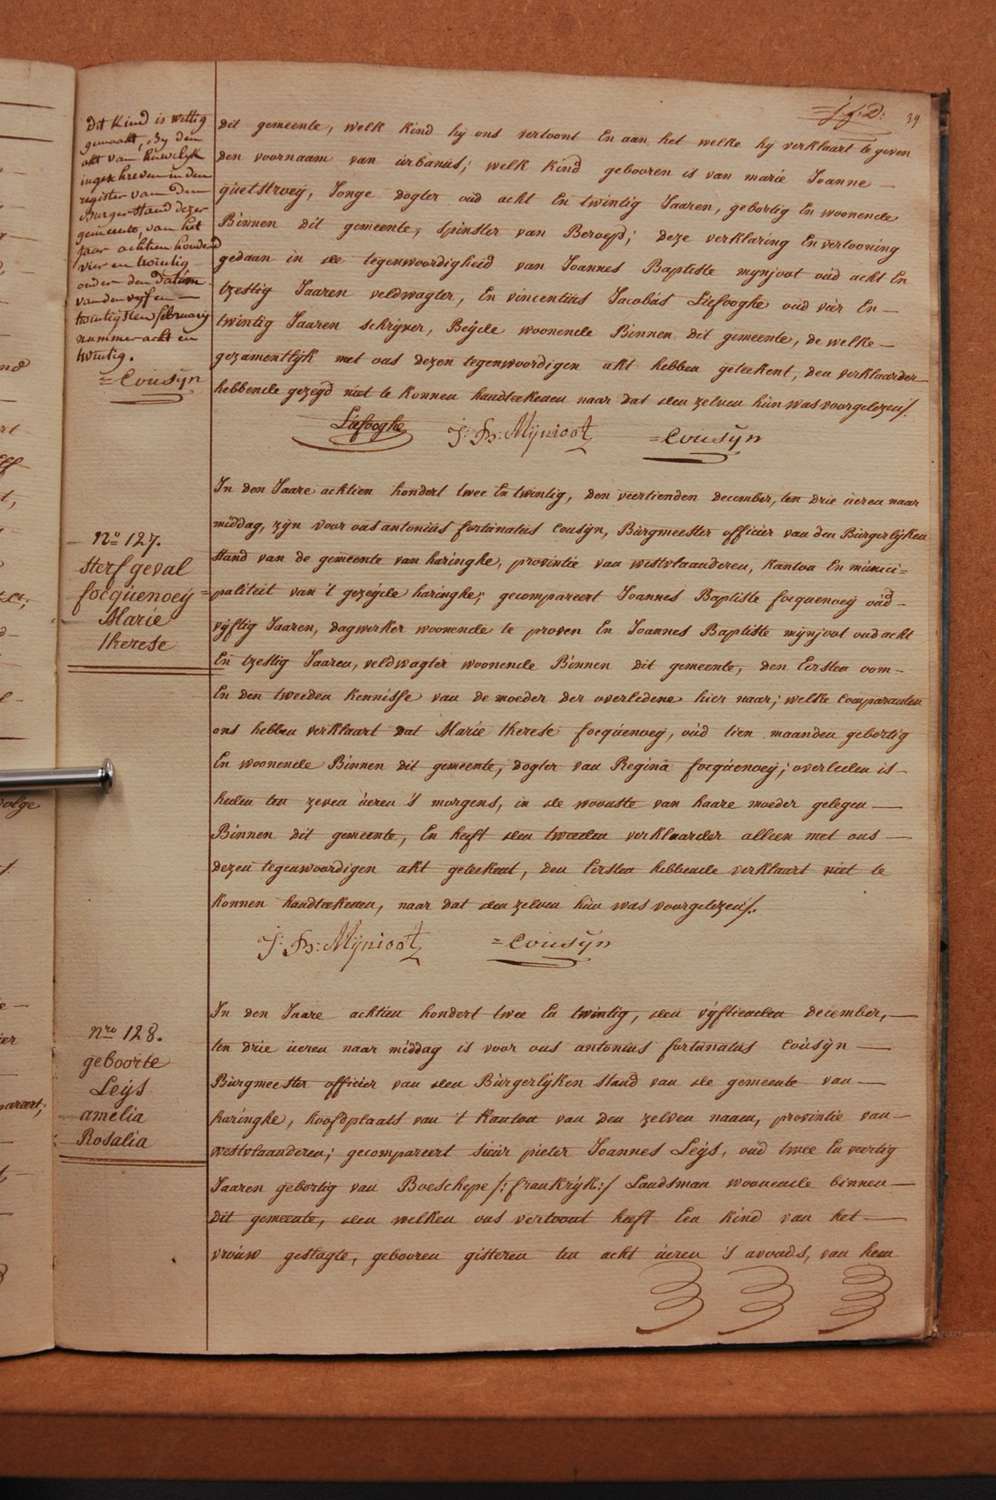 39
Dit Kind is wettig
gemaakt, by den
akt van huwelyk
ingeschreven in den
register van den
Burgerstand dezer
gemeente, van het
jaar achtien honderd
vier en twintig
onder den datum
van den vyf en
twintigsten february
nummer acht en
twintig.
=Cousÿn
dit gemeente, welk kind hÿ ons vertoont En aan het welke hÿ verklaart te geven
den voornaam van urbanus; welk kind gebooren is van marie Joanne
quetstroeÿ, Jonge dogter oud acht En twintig Jaaren, gebortig En woonende
Binnen dit gemeente, spinster van Beroep; deze verklaring En vertooning
gedaan in de tegenwoordigheid van Joannes Baptiste mÿnjoot oud acht En
tzestig Jaaren veldwagter, En vincentius Jacobus Liefooghe oud vier En
twintig Jaaren schrÿver, Beÿde woonende Binnen dit gemeente, de welke
gezamentlÿk met ons dezen tegenwoordigen akt hebben geteekent, den verklaarder
hebbende gezegd niet te konnen handteekenen naar dat den zelven hun was voorgelezen/.
Liefooghe J: Bs: Mÿnioot =Cousÿn
No 127.
Sterfgeval
focquenoeÿ
Marie
therese
In den Jaare achtien hondert twee En twintig, den veertienden december, ten drie ueren naar
middag, zÿn voor ons antonius fortunatus Cousÿn, Burgmeester officier van den Burgerlÿken
stand van de gemeente van haringhe, provintie van westvlaanderen, Kanton En munici=
=paliteit van 't gezeÿde haringhe; gecompareert Joannes Baptiste focquenoeÿ oud
vÿftig Jaaren, dagwerker woonende te proven En Joannes Baptiste mÿnjoot oud acht
En tzestig Jaaren, veldwagter woonende Binnen dit gemeente, den Eersten oom
En den tweeden kennisse van de moeder der overledene hier naar; welke comparanten
ons hebben verklaart dat Marie therese focquenoeÿ, oud tien maanden gebortig
En woonende Binnen dit gemeente, dogter van Regina focquenoeÿ; overleden is
heden ten zeven ueren 's morgens, in de woonste van haare moeder gelegen
Binnen dit gemeente, En heeft den tweeden verklaarder alleen met ons
dezen tegenwoordigen akt geteekent, den Eersten hebbende verklaart niet te
konnen handteekenen, naar dat den zelven hun was voorgelezen/.
J: Bs: Mÿnioot =Cousÿn
Nro 128.
geboorte
Leÿs
amelia
Rosalia
In den Jaare achtien hondert twee En twintig, den vÿftienden december,
ten drie ueren naar middag is voor ons antonius fortunatus Cousÿn
Burgmeester officier van den Burgerlÿken stand van de gemeente van
haringhe, hoofdplaats van 't Kanton van den zelven naam, provintie van
westvlaanderen; gecompareert sieur pieter Joannes Leÿs, oud twee En veertig
Jaaren gebortig van Boeschepe /:frankrÿk:/ Landsman woonende binnen
dit gemeente, den welken ons vertoont heeft Een kind van het
vrouw geslagte, gebooren gisteren ten acht ueren 's avonds, van hem